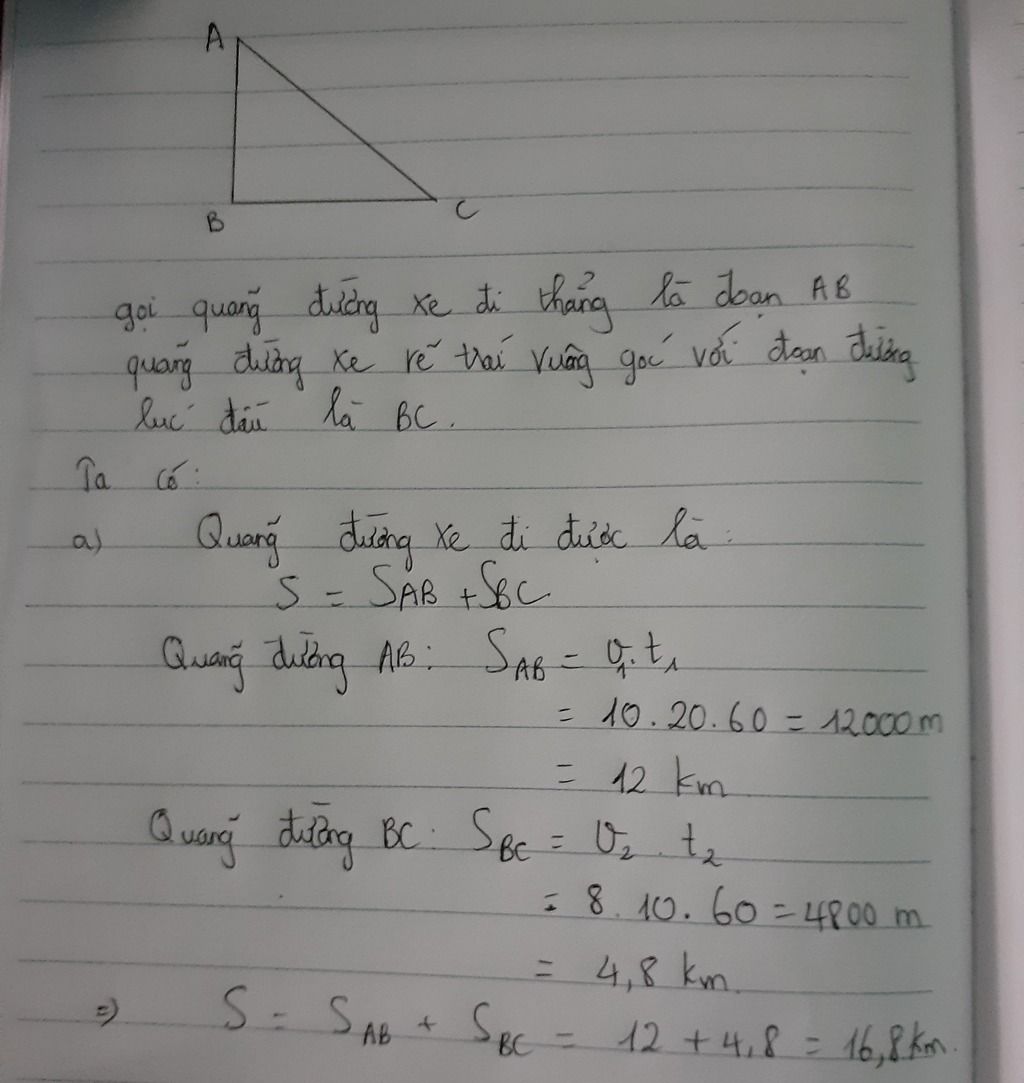 A
B
C
gọi quãng đường xe đi thẳng là đoạn AB
quãng đường xe rẽ trái vuông góc với đoạn đường
lúc đầu là BC.
Ta có:
a) Quãng đường xe đi được là:
S = SAB + SBC
Quãng đường AB: SAB = v1.t1
= 10.20.60 = 12000m
= 12 km
Quãng đường BC: SBC = v2 . t2
= 8.10.60 = 4800 m
= 4,8 km.
=> S = SAB + SBC = 12 + 4,8 = 16,8km.